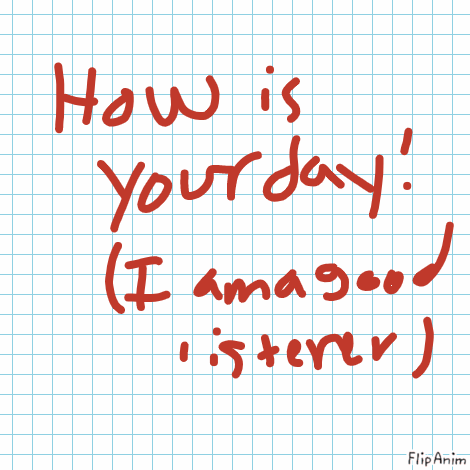 How is
your day!
(I am a good
listener)
FlipAnim